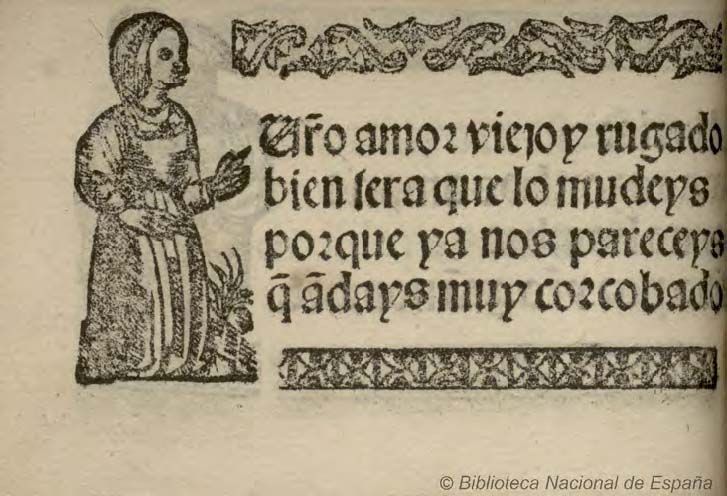 Ur̃o amor viejo y rugado
bien sera que lo mudeys
porque ya nos pareceys
q̃ ãdays muy corcobado
© Biblioteca Nacional de España